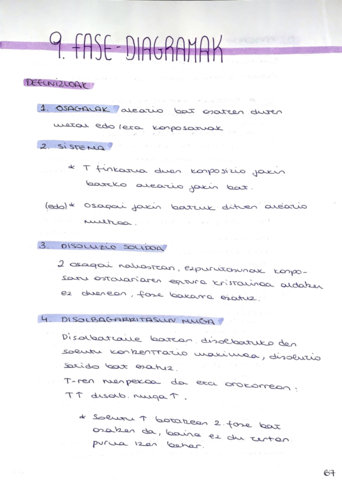 9. FASE-DIAGRAMAK
DEFINIZIOAK
1. OSAGAIAK aleazio bat osatzen duten
metal edo/eta konposatuak
2. SISTEMA
* T finkatua duen konposizio jakin
bateko aleazio jakin bat.
(edo)* Osagai jakin batzuk dituen aleazio
multzoa.
3. DISOLUZIO SOLIDOA
2 osagai nahastean, ezpurutasunak konpo-
satu ostalariaren egitura kristalinoa aldatzen
ez duenean, fase bakarra osatuz.
4. DISOLBAGARRITASUN MUGA
Disolbatzaile batean disolbatuko den
solutu kontzentrazio maximoa, disoluzio
solido bat osatuz.
T-ren menpekoa da eta orokorrean:
T↑ disolb. muga ↑.
* Solutu ↑ botatzean 2 fase bat
osatzen da, baina ez du zertan
purua izan behar.
67